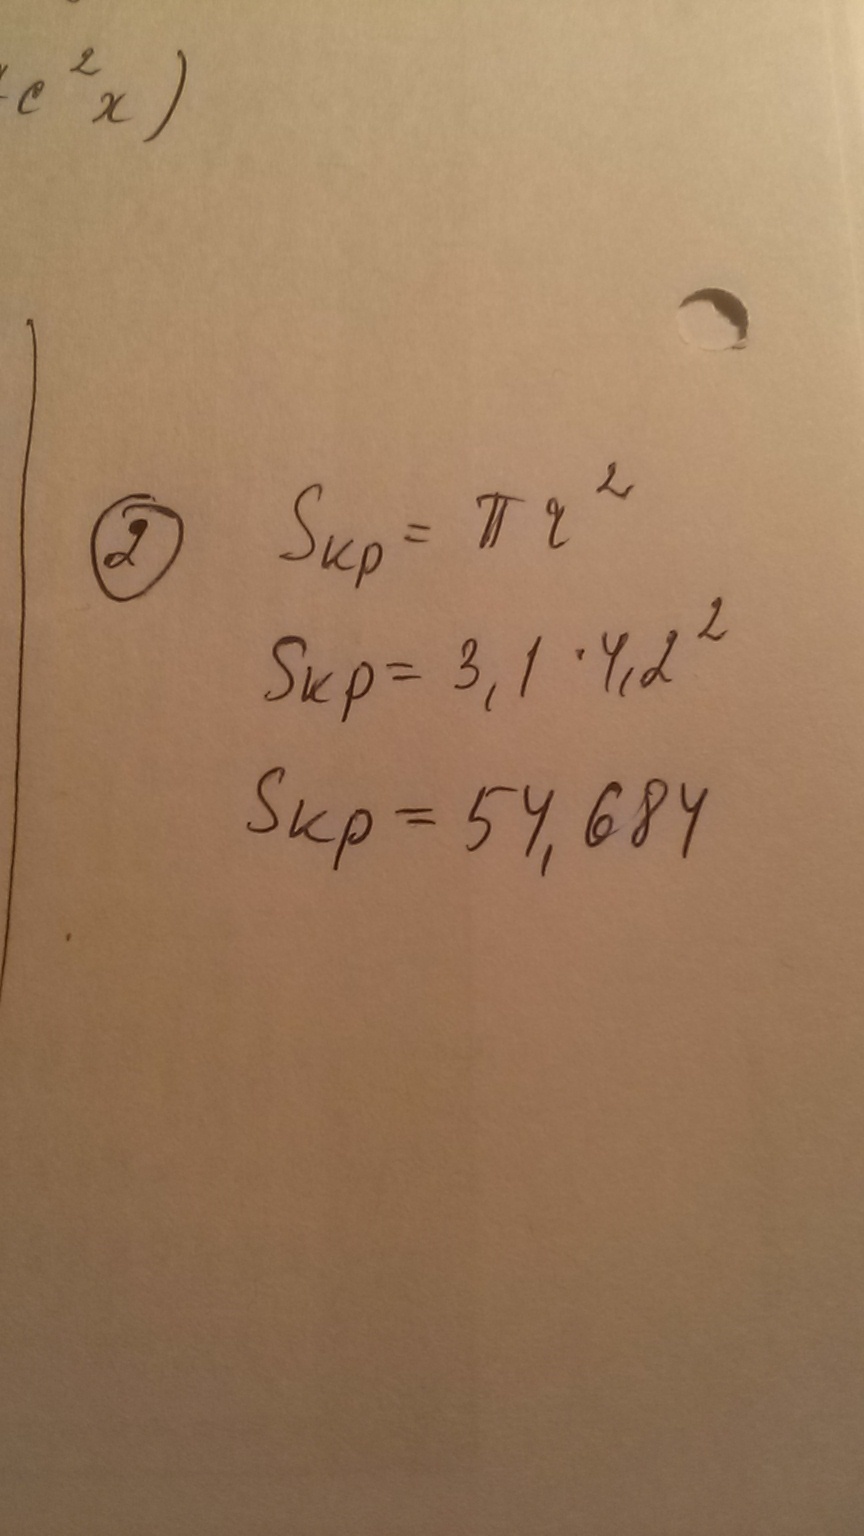 c²x)
② Sкр = πr²
Sкр = 3,1 · 4,2²
Sкр = 54,684